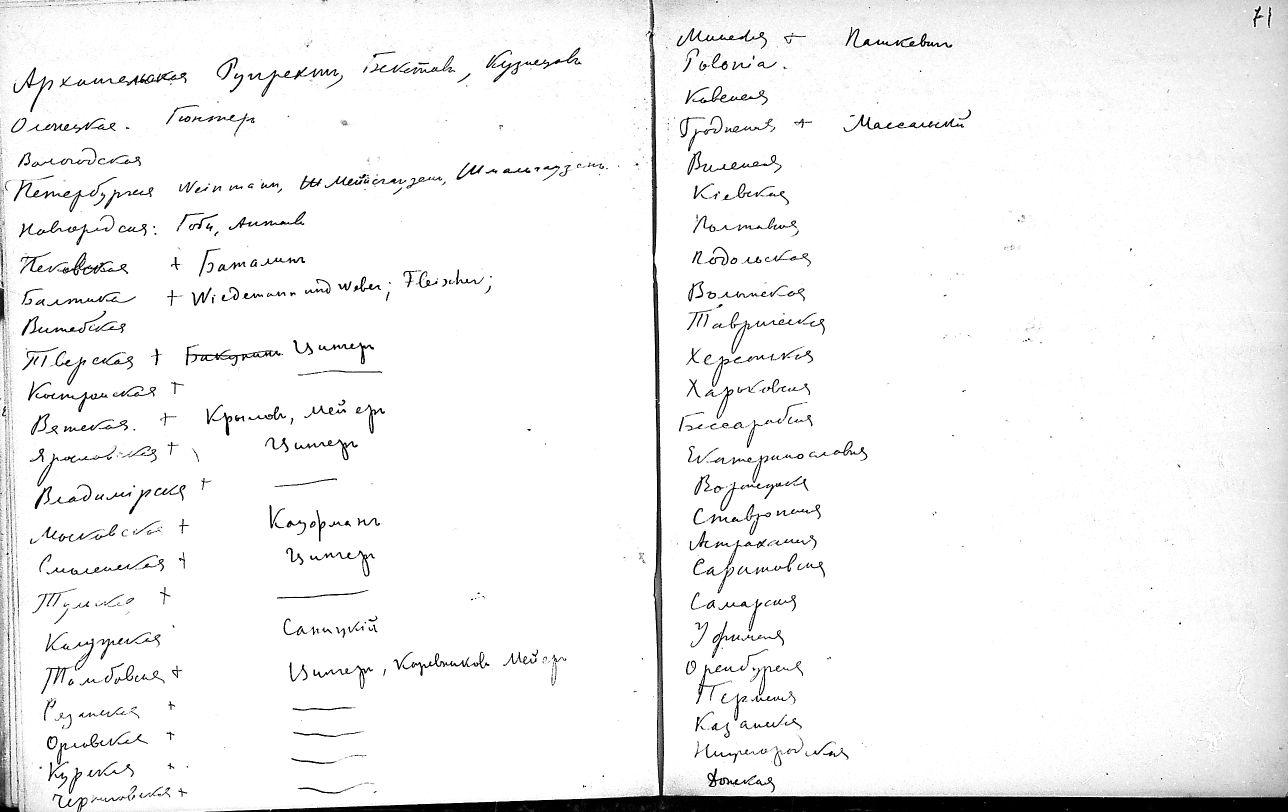 Архангельская Рупрехт, Бекетов, Кузнецов
Олонецкая. Гюнтер
Вологодская
Петербургская Weinmann, Шмальгаузен
Новгородская: Гоби, Антонов
Псковская + Баталин
Балтика + Wiedemann und Weber; Fleischer;
Витебская
Тверская + Бакунин Цингеръ
Костромская +
Вятская. + Крылов, Мейеръ
Ярославская + Цингеръ
Владимірская +
Московская + Кауфманъ
Смоленская + Цингеръ
Тульская +
Калужская Саницкій
Тамбовская + Цингеръ, Коревников Мейеръ
Рязанская +
Орловская +
Курская +
Черниговская +
71
Минская + Пашкевич
Polonia.
Ковенская
Гродненская + Массальскій
Виленская
Кіевская
Полтавская
Подольская
Волынская
Таврическая
Херсонская
Харьковская
Бессарабская
Екатеринославская
Воронежская
Ставропольская
Астраханская
Саратовская
Самарская
Уфимская
Оренбургская
Пермская
Казанская
Нижегородская
Донская